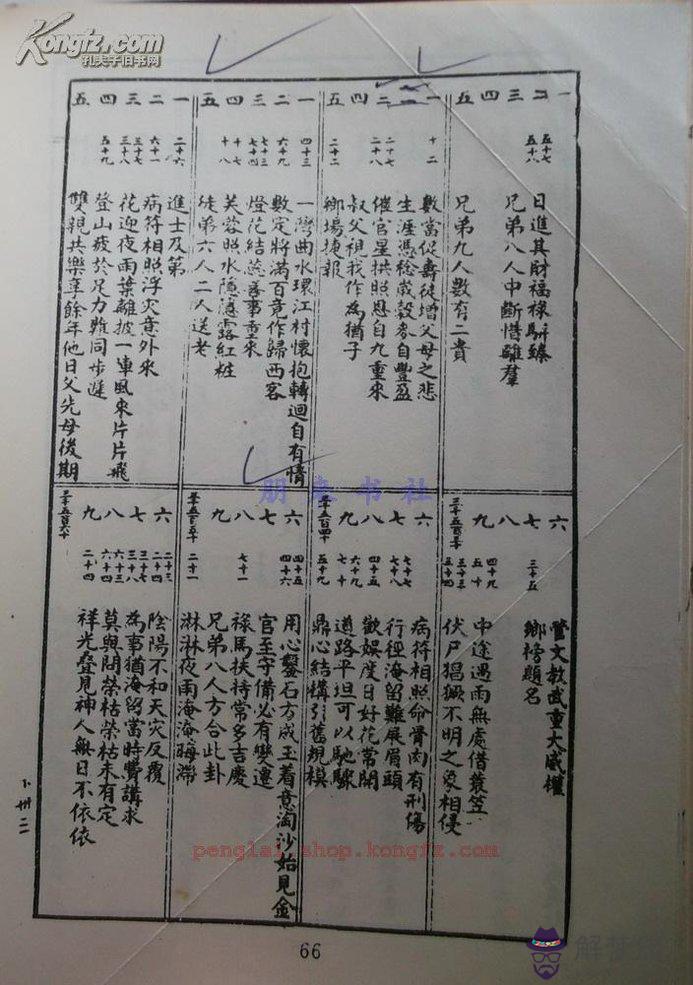 Kongfz.com
孔夫子旧书网
一
二
五十七
五十八
日進其財福祿駢臻
三
兄弟八人中斷惜離羣
四
五
兄弟九人數有二貴
一
十二
數當促壽徒增父母之悲
二
二十七
生涯憑稔歲穀麥自豐盈
三
二十八
催官星拱照恩自九重來
四
叔父祖我作為猶子
五
二十二
鄉場捷報
一
四十三
一灣曲水環江村懷抱轉迴自有情
二
六十九
數定將滿百竟作歸西客
三
七十三
七十四
燈花結蕊喜事重來
四
十七
芙蓉照水隱隱露紅粧
五
十八
徒弟六人二人送老
一
二十六
進士及第
二
六十一
病符相照浮灾意外來
三
三十七
三十八
花迎夜雨葉離披一陣風來片片飛
四
登山疲於足力難同步遲
五
五十九
雙親共樂享餘年他日父先母後期
六
管文教武重大威權
七
三十五
鄉榜題名
八
四十九
五十
中途遇雨無處借蓑笠
九
五十三
五十四
伏尸猖獗不明之象相侵
六
七十七
七十八
病符相照命骨肉有刑傷
行徑淹留難展眉頭
七
四十五
歡娛度日好花常開
八
六十九
七十
道路平坦可以馳驟
九
五十九
鼎心結構引舊規模
六
四十五
四十六
用心鑿石方成玉着意淘沙始見金
七
官至守備必有變遷
八
七十一
祿馬扶持常多吉慶
九
兄弟八人方合此卦
二十一
淋淋夜雨淹淹晦滯
六
二十三
二十四
陰陽不和天灾反覆
七
三十七
三十八
為事猶淹留當時費講求
八
六十三
六十四
莫與問榮枯榮枯未有定
九
二十四
祥光叠見神人無日不依依
卜卅二
朋来书社
penglai shop.kongfz.com
66